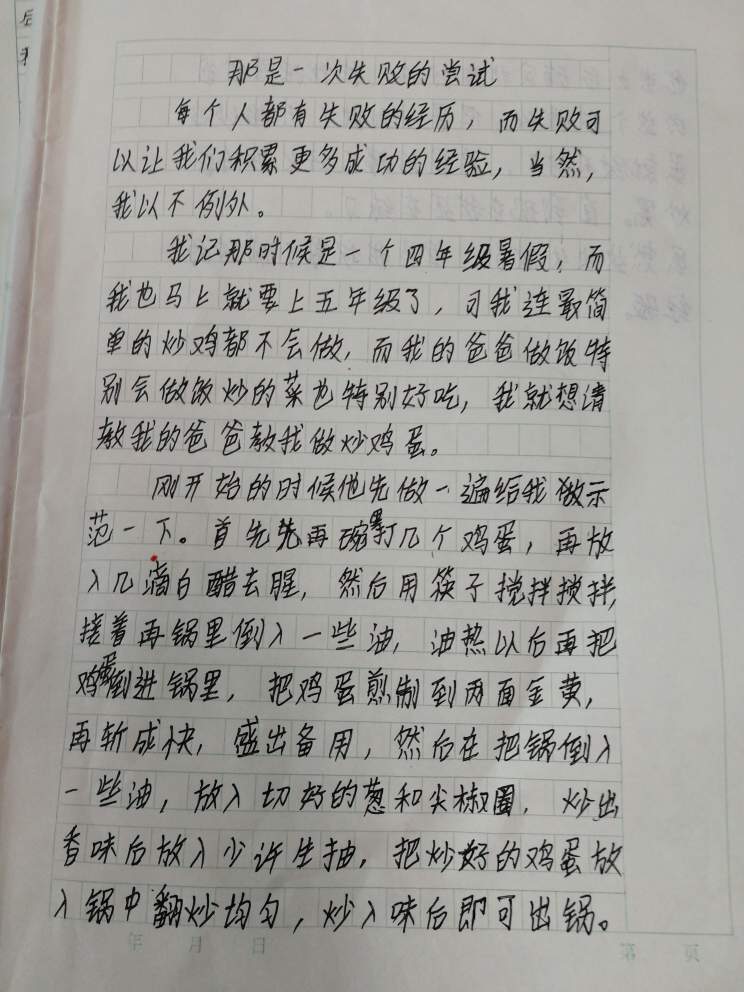 那是一次失败的尝试
每个人都有失败的经历，而失败可
以让我们积累更多成功的经验，当然，
我以不例外。
我记那时候是一个四年级暑假，而
我也马上就要上五年级了，可我连最简
单的炒鸡都不会做，而我的爸爸做饭特
别会做饭炒的菜也特别好吃，我就想请
教我的爸爸教我做炒鸡蛋。
刚开始的时候他先做一遍给我做示
范一下。首先先再碗里打几个鸡蛋，再放
入几滴白醋去腥，然后用筷子搅拌搅拌，
接着再锅里倒入一些油，油热以后再把
鸡蛋倒进锅里，把鸡蛋煎制到两面金黄，
再斩成快，盛出备用，然后在把锅倒入
一些油，放入切好的葱和尖椒圈，炒出
香味后放入少许生抽，把炒好的鸡蛋放
入锅中翻炒均匀，炒入味后即可出锅。
年 月 日
第 页